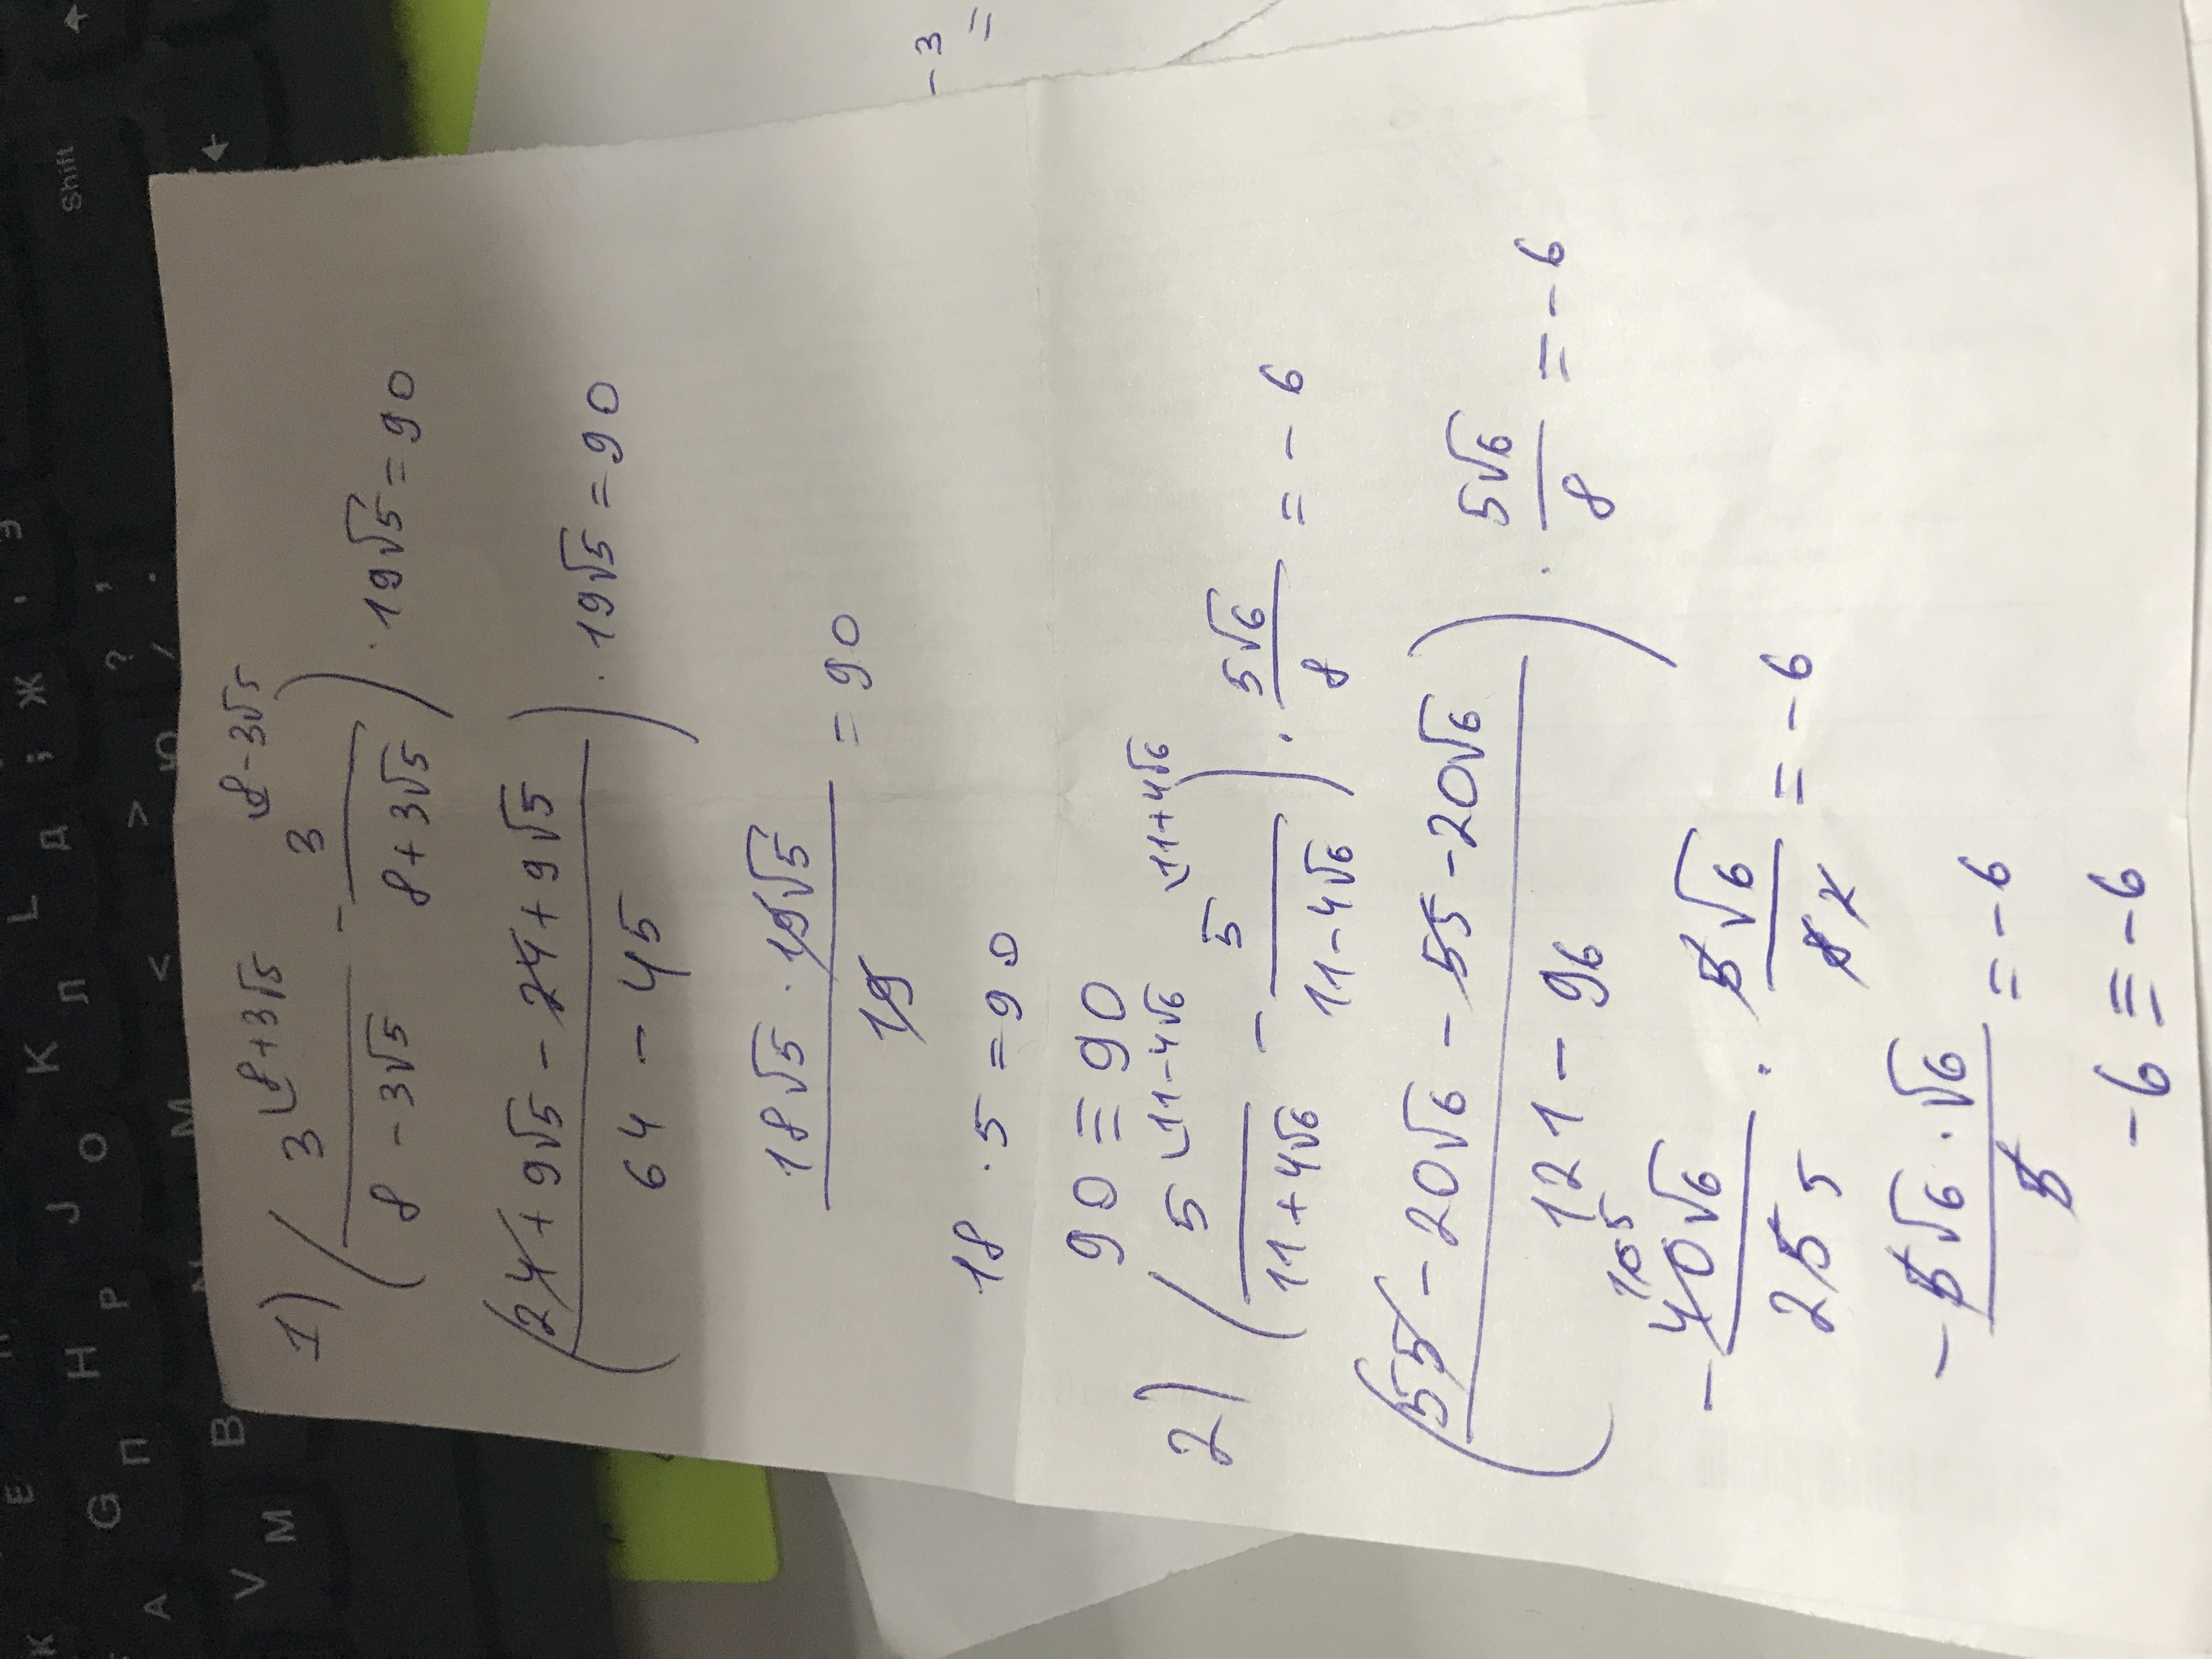 1) (3 ⌊8+3√5 / 8 - 3√5 - 3 ⌊8-3√5 / 8+3√5) · 19√5 = 90
(24 + 9√5 - 24 + 9√5 / 64 - 45) · 19√5 = 90
18√5 · 19√5 / 19 = 90
18 · 5 = 90
90 ≡ 90
2) (5 ⌊11-4√6 / 11+4√6 - 5 ⌊11+4√6 / 11-4√6) · 5√6 / 8 = - 6
(55 - 20√6 - 55 - 20√6 / 121 - 96) · 5√6 / 8 = - 6
- 40√6 / 25 5 · 5√6 / 8 = - 6
- 5√6 · √6 / 5 = - 6
- 6 ≡ - 6
- 3
=
Shift
E
П
Н
Р
О
J
К
Л
L
Д
;
Ж
Э
A
G
H
V
M
B
N
М
<
>
Ю
?
/
.